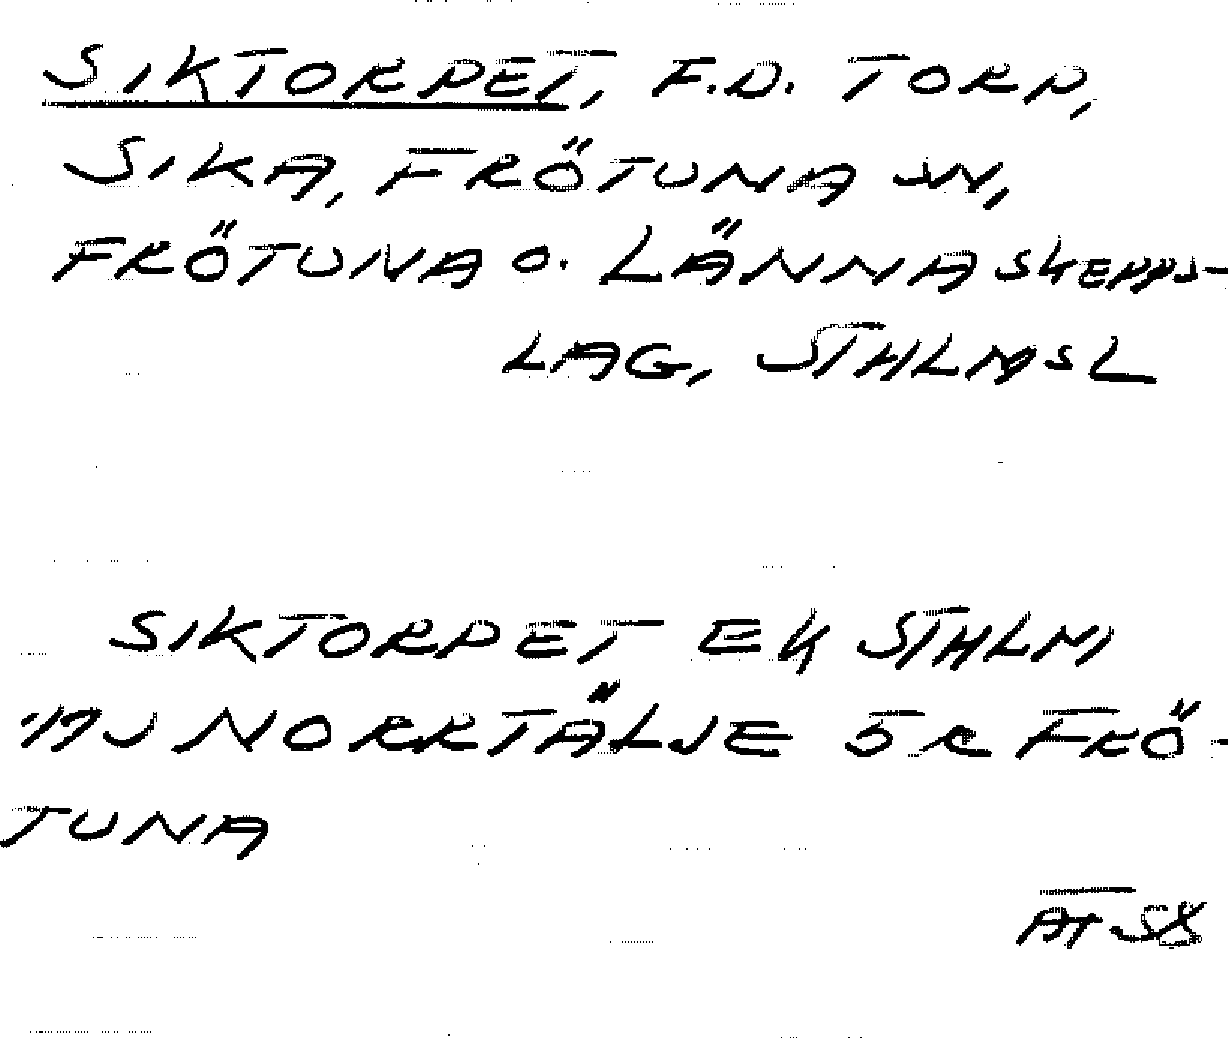 SIKTORPET, F.D. TORP,
SIKA, FRÖTUNA SN,
FRÖTUNA O. LÄNNA SKEPPS-
LAG, STHLMSL
SIKTORPET EK STHLM
11J NORRTÄLJE 5R FRÖ-
TUNA